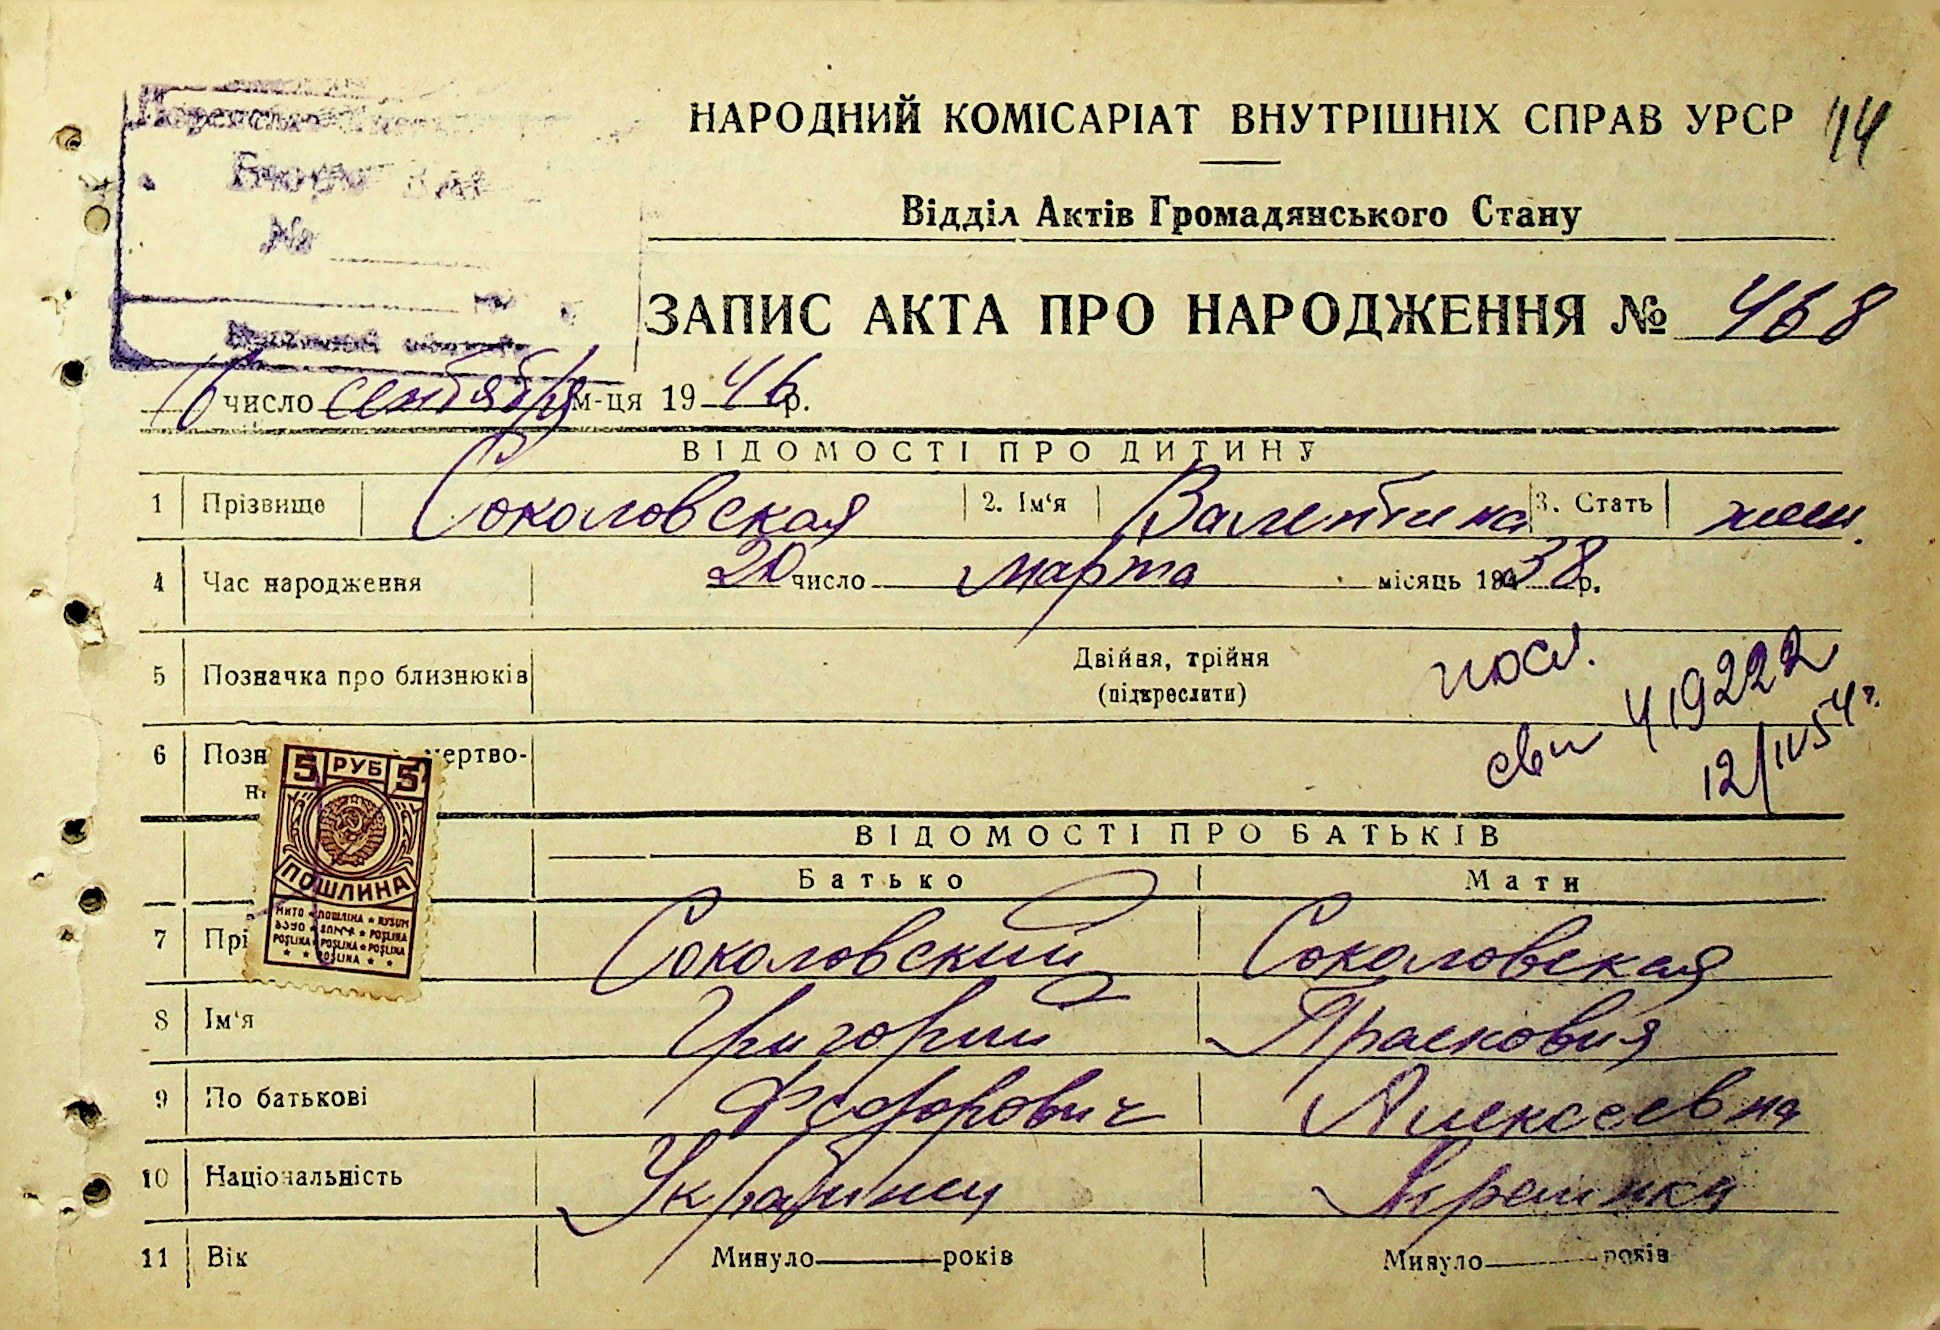 НАРОДНИЙ КОМІСАРІАТ ВНУТРІШНІХ СПРАВ УРСР
Бюро ЗАГС
№
Відділ Актів Громадянського Стану
ЗАПИС АКТА ПРО НАРОДЖЕННЯ № 468
6 число сентября м-ця 1946 р.
ВІДОМОСТІ ПРО ДИТИНУ
1 Прізвище Соколовская 2. Ім‘я Валентина 3. Стать жен.
4 Час народження 20 число марта місяць 1938 р.
5 Позначка про близнюків Двійня, трійня
(підкреслити)
свид 419222
12/IV 54 г.
6 Позн мертво-
5 РУБ 5
ПОШЛИНА
МИТО ПОШЛІНА RÜSUM
POŞLINA
POŞLINA POŞLINA POŞLINA
POŞLINA
ВІДОМОСТІ ПРО БАТЬКІВ
Батько Мати
7 Прі Соколовский Соколовская
8 Ім‘я Григорий Прасковия
9 По батькові Федорович Алексеевна
10 Національність Украинец Украинка
11 Вік Минуло років Минуло років